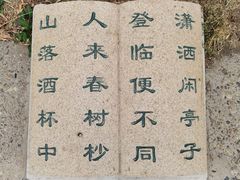 潇洒闲亭子
登临便不同
人来春树杪
山落酒杯中